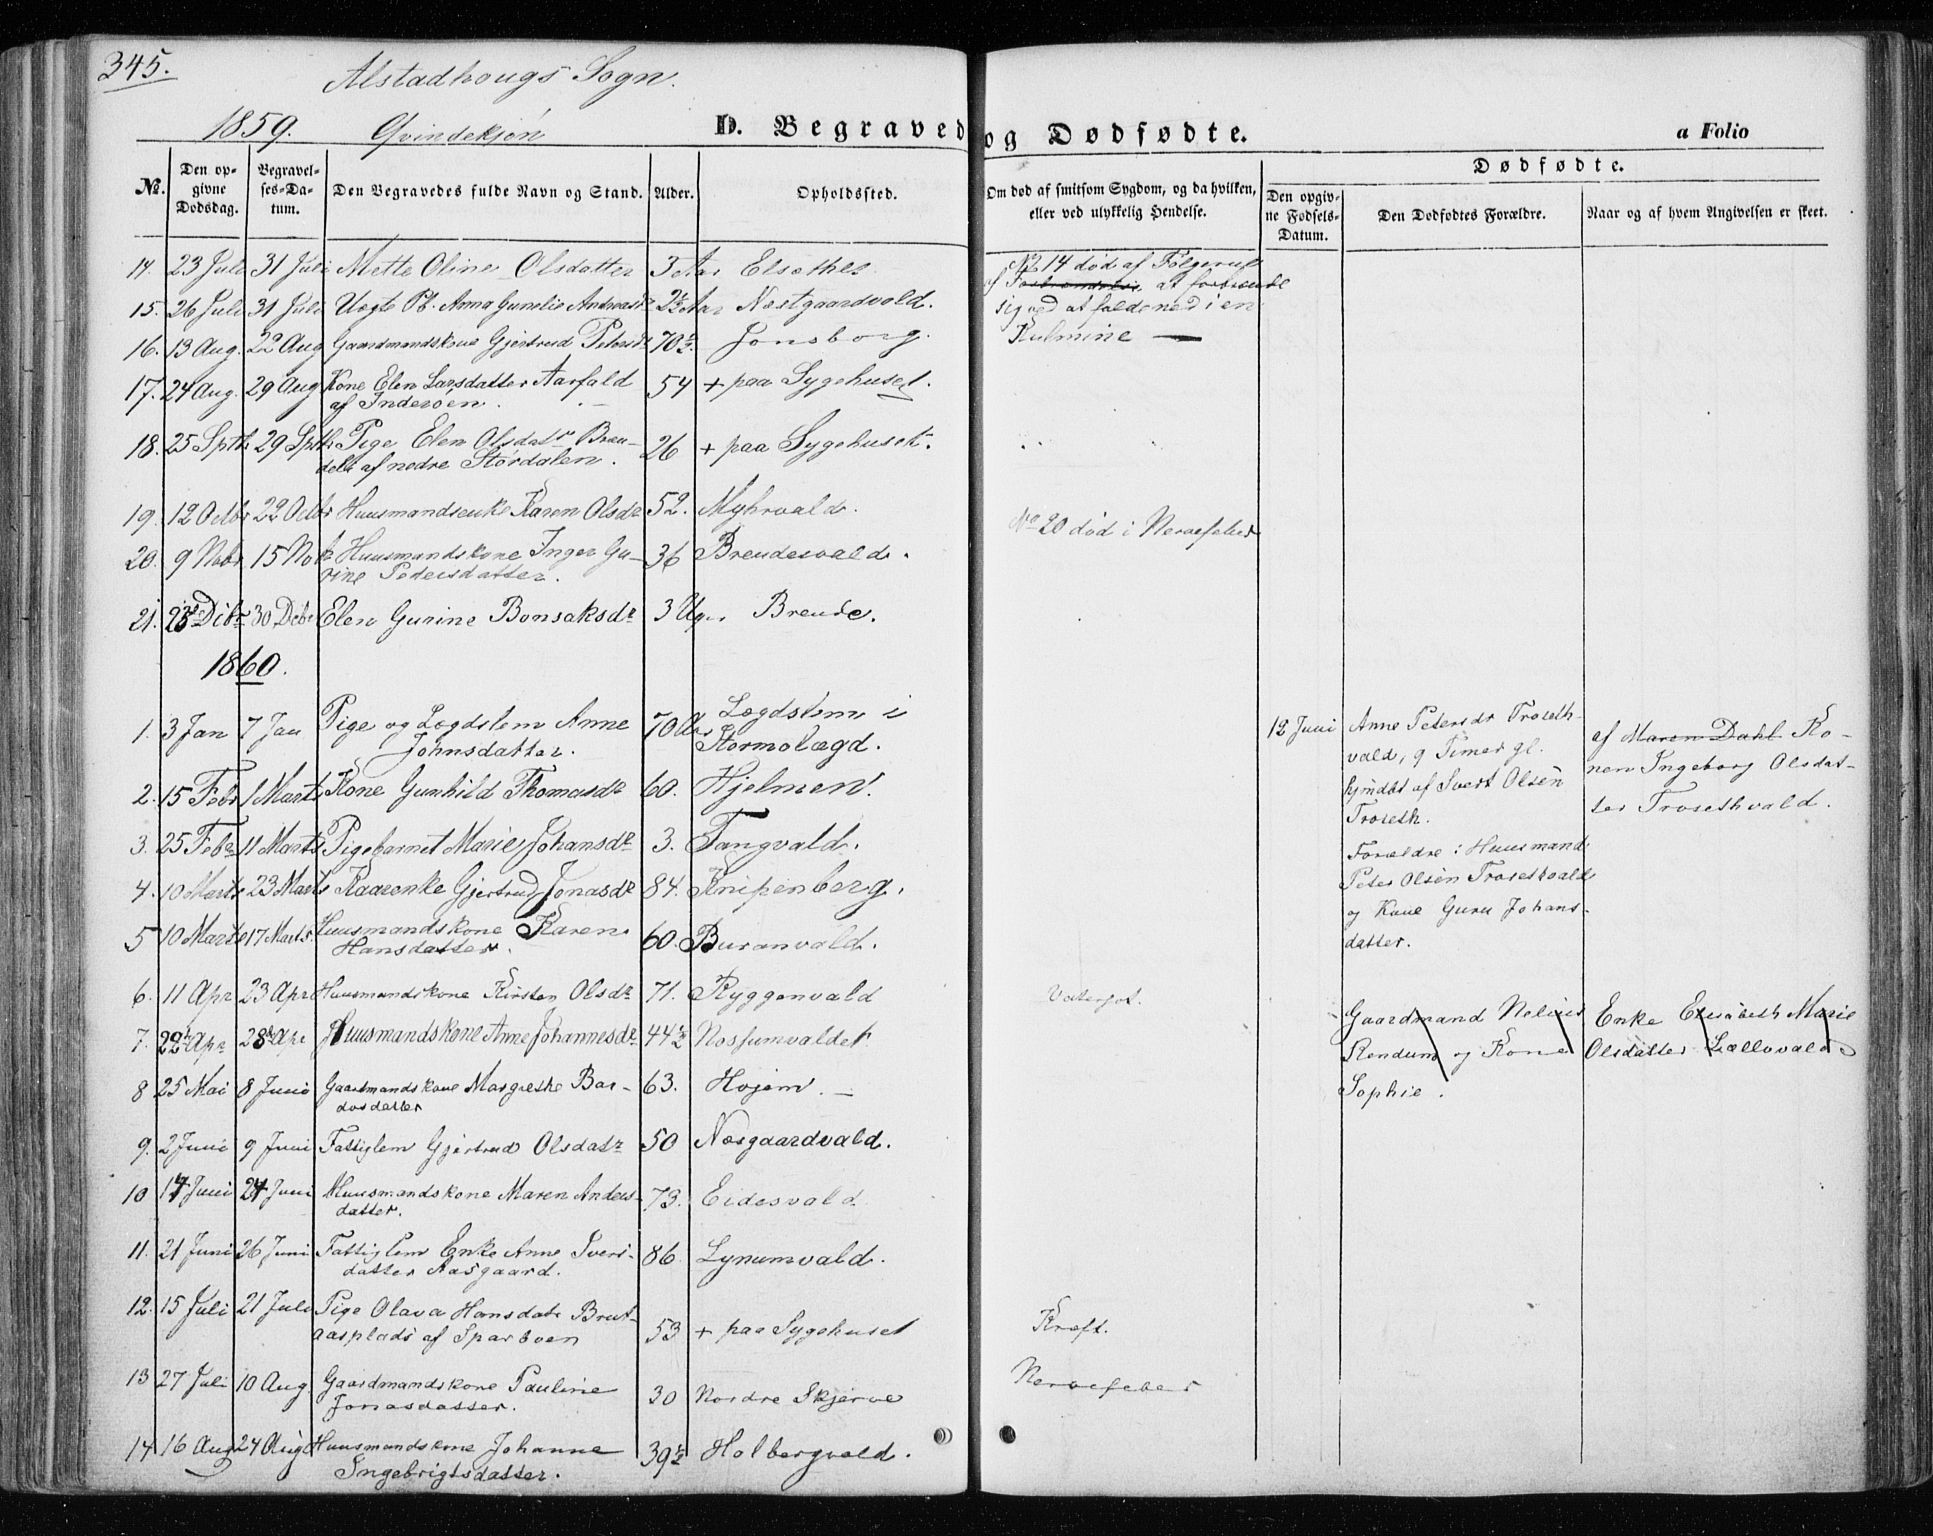 345.
Alstadhougs Sogn.
1859. Qvindekjøn
D. Begravede og Dødfødte.
a Folio
No. Den opgivne Dødsdag. Begravelses-Datum. Den Begravedes fulde Navn og Stand. Alder. Opholdssted. Om død af smitsom Sygdom, og da hvilken, eller ved ulykkelig Hendelse.
Dødfødte.
Den opgivne Fødsels-Datum. Den Dødfødtes Forældre. Naar og af hvem Angivelsen er skeet.
14. 23 Juli 31 Juli Mette Oline Olsdatter 3 Aar
15. 26 Juli 31 Juli Uægte Pb. Anna Gunelie Andreasdr 2½ Aar Næstgaardvald.
16. 13 Aug. 22 Aug Gaardmandskone Gjertrud Petersdr 70½. Jonsborg.
17. 24 Aug. 29 Aug Kone Elen Larsdatter Aarfald
af Inderøen. 54 + paa Sygehuset.
18. 25 Sptb 29 Sptb Pige Elen Olsdatr
af nedre Størdalen. 26 + paa Sygehuset.
19. 12 Octbr 22 Octbr Huusmandsenke Karen Olsdr 52. Myhrvald.
20. 9 Nobr 15 Nobr Huusmandskone Inger Gu-
rine Pedersdatter. 36 Breudesvald.
21. 23 Dibr 30 Debr Elen Gurine Bonsaksdr 3 Uger Breude.
1860.
1. 3 Jan 7 Jan Pige og Lægdslem Anne
Johnsdatter. 70 Aar Lægdslem i
Stormolægd.
2. 15 Febr 1 Marts Kone Gunhild Thomasdr 60. Hjelmen.
3. 25 Febr 11 Marts Pigebarnet Marie Johansdr 3. Tangvald.
4. 10 Marts 23 Marts Kaarenke Gjertrud Jonasdr 84. Knipenberg.
5 10 Marts 17 Marts. Huusmandskone Karen
Hansdatter. 60. Buranvald.
6. 11 Apr 23 Apr Huusmandskone Kirsten Olsdr 71. Ryggenvald
7. 22 Apr 28 Apr Huusmandskone Anne Johannesdr 44½ Nossumvaldet
8 25 Mai 8 Juni Gaardmandskone Margrethe Bar-
dosdatter 63. Hojem.
9. 2 Juni 9 Juni Fattiglem Gjertrud Olsdatr 50 Næsgaardvald.
10 14 Juni 24 Juni Huusmandskone Maren Anders-
datter. 73. Eidesvald.
11. 21 Juni 26 Juni Fattiglem Enke Anne Ivers-
datter Aasgaard. 86 Lynumvald.
12. 15 Juli 21 Juli Pige Olava Hansdatr
af Sparboen 53 + paa Sygehuset
13 27 Juli 10 Aug. Gaardmandskone Pauline
Jonasdatter. 30 Nordre Skjerve
14 16 Aug 24 Aug Huusmandskone Johanne
Ingebrigtsdatter. 39½ Holbergvald.
No 14 død af Følgerne
af at forbrænde
sig ved at falde ned i en
Kulmine
No 20 død i Nervefeber
Vatersot.
Kræft.
Nervefeber
12 Juni Anne Petersdr Troseth-
vald, 9 Timer gl.
hjmdøbt af Sivert Olsen
Troseth.
Forældre: Huusmand
Peter Olsen Trosethvald
og Kone Guru Johans-
datter.
af Maren Dahl Ko-
nen Ingeborg Olsdat-
ter Trosethvald.
Gaardmand Nelius
Rendum og Kone
Sophie.
Enke Elisabeth Marie
Olsdatter